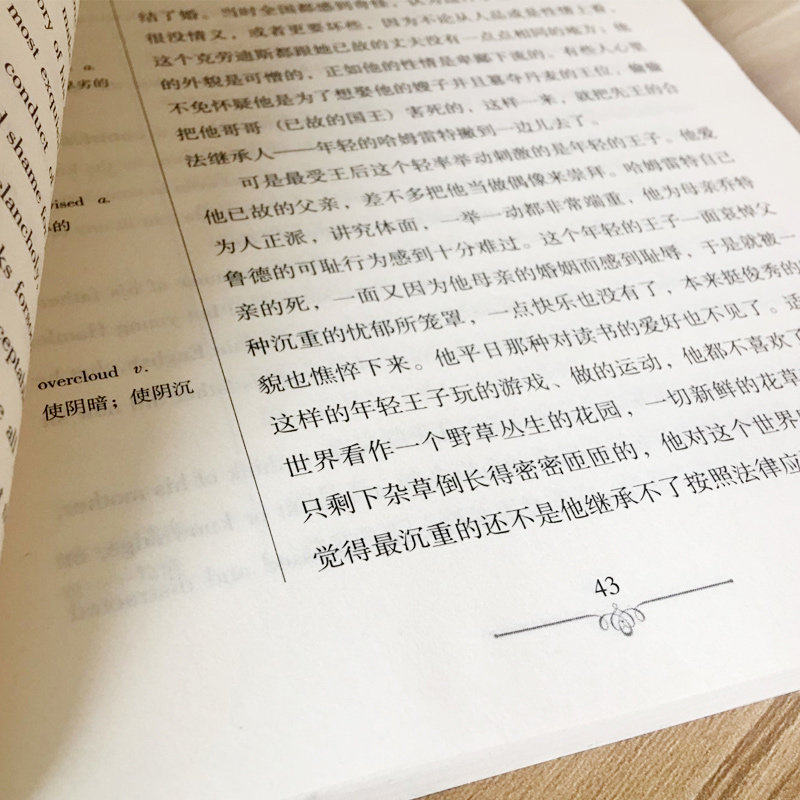 ory of h
most exqui
conduct
d shame
elancholy
ks for
ceptal
all
a.
劣的
ised a.
的
overcloud v.
使阴暗；使阴沉
结了婚。当时全国都感到奇怪，
很没情义，或者更要坏些，因为不论从人品或是性情上看，
这个克劳迪斯都跟她已故的丈夫没有一点点相同的地方；他
的外貌是可憎的，正如他的性情是卑鄙下流的。有些人心里
不免怀疑他是为了想娶他的嫂子并且篡夺丹麦的王位，偷偷
把他哥哥（已故的国王）害死的，这样一来，就把先王的合
法继承人——年轻的哈姆雷特撇到一边儿去了。
可是最受王后这个轻率举动刺激的是年轻的王子。他爱
他已故的父亲，差不多把他当做偶像来崇拜。哈姆雷特自己
为人正派，讲究体面，一举一动都非常端重，他为母亲乔特
鲁德的可耻行为感到十分难过。这个年轻的王子一面哀悼父
亲的死，一面又因为他母亲的婚姻而感到耻辱，于是就被一
种沉重的忧郁所笼罩，一点快乐也没有了，本来挺俊秀的
貌也憔悴下来。他平日那种对读书的爱好也不见了。适
这样的年轻王子玩的游戏、做的运动，他都不喜欢了
世界看作一个野草丛生的花园，一切新鲜的花草
只剩下杂草倒长得密密匝匝的，他对这个世界
觉得最沉重的还不是他继承不了按照法律应
43